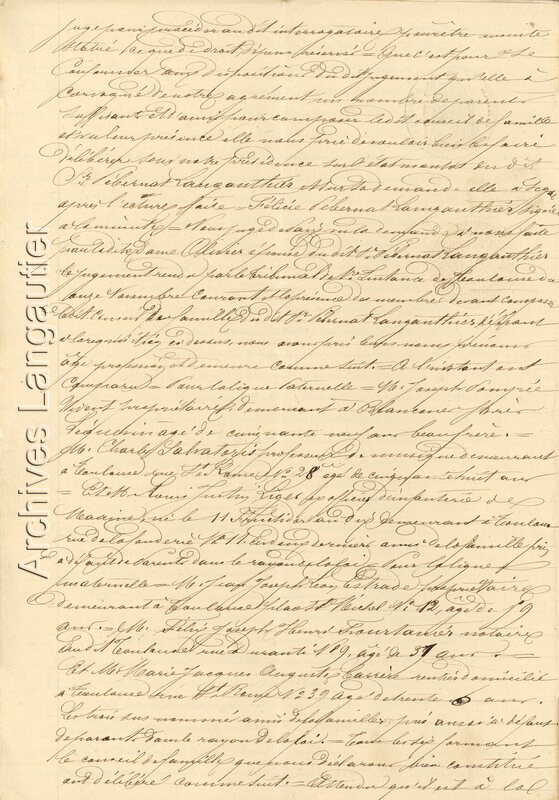 juge pour procéder au dit interrogatoire pour être ensuite
statué ce que de droit dépens réservés = Que c'est pour se
Conformer aux dispositions du dit jugement qu'elle a
convoqué de notre agrément un nombre de parents
suffisants et d'amis pour composer le dit conseil de famille
et sa leur présence elle nous prie de vouloir bien les faire
délibérer sous notre présidence sur l'état mental du dit
Sr Pébernat Langauthier et sur sa demande elle a signé
après lecture faite = Félicie Pébernat Langauthier signée
à la minute = Nous juge de paix vu la demande à nous faite
par la dite Dame Olivier épouse du dit Sr Pébernat Langauthier
le jugement rendu par le tribunal de 1re Instance de Toulouse du
onze Novembre Courant et la présence des membres devant composer
le dit Conseil de famille du dit Sr Pébernat Langauthier
nous avons pris leurs noms prénoms
âge profession et demeure comme suit = A l'instant ont
Comparu = Pour la ligne Paternelle = M. Joseph Pompée
Vivent propriétaire demeurant à
âgé de cinquante neuf ans beau frère =
M. Charles Salvatoris professeur de musique demeurant
à Toulouse rue St Rome No 28 âgé de cinquante huit ans
= Et M. Louis Justin officier d'infanterie de
Marine né le 11 demeurant à Toulouse
rue de la fonderie No 11 les deux derniers amis de la famille pris
à défaut de Parents dans le rayon de la loi = Pour la ligne
maternelle = M. Jean Joseph Léon Estrade propriétaire
demeurant à Toulouse place St Michel No 12, âgé de 59
ans = M. Félix Joseph Henri Fourtanier notaire
au dit Toulouse rue Duranti No 9, âgé de 51 ans =
Et M. Marie Jacques Auguste Carrère rentier domicilié
à Toulouse rue St Rome No 39 âgé de trente 6 ans
Les trois sus nommés amis de la famille, pris aussi à défaut
de parents dans le rayon de la loi = tous les six formant
le conseil de famille que nous déclarons bien constitué
ont délibéré comme suit = Attendu qu'il est à la
Archives Langautier